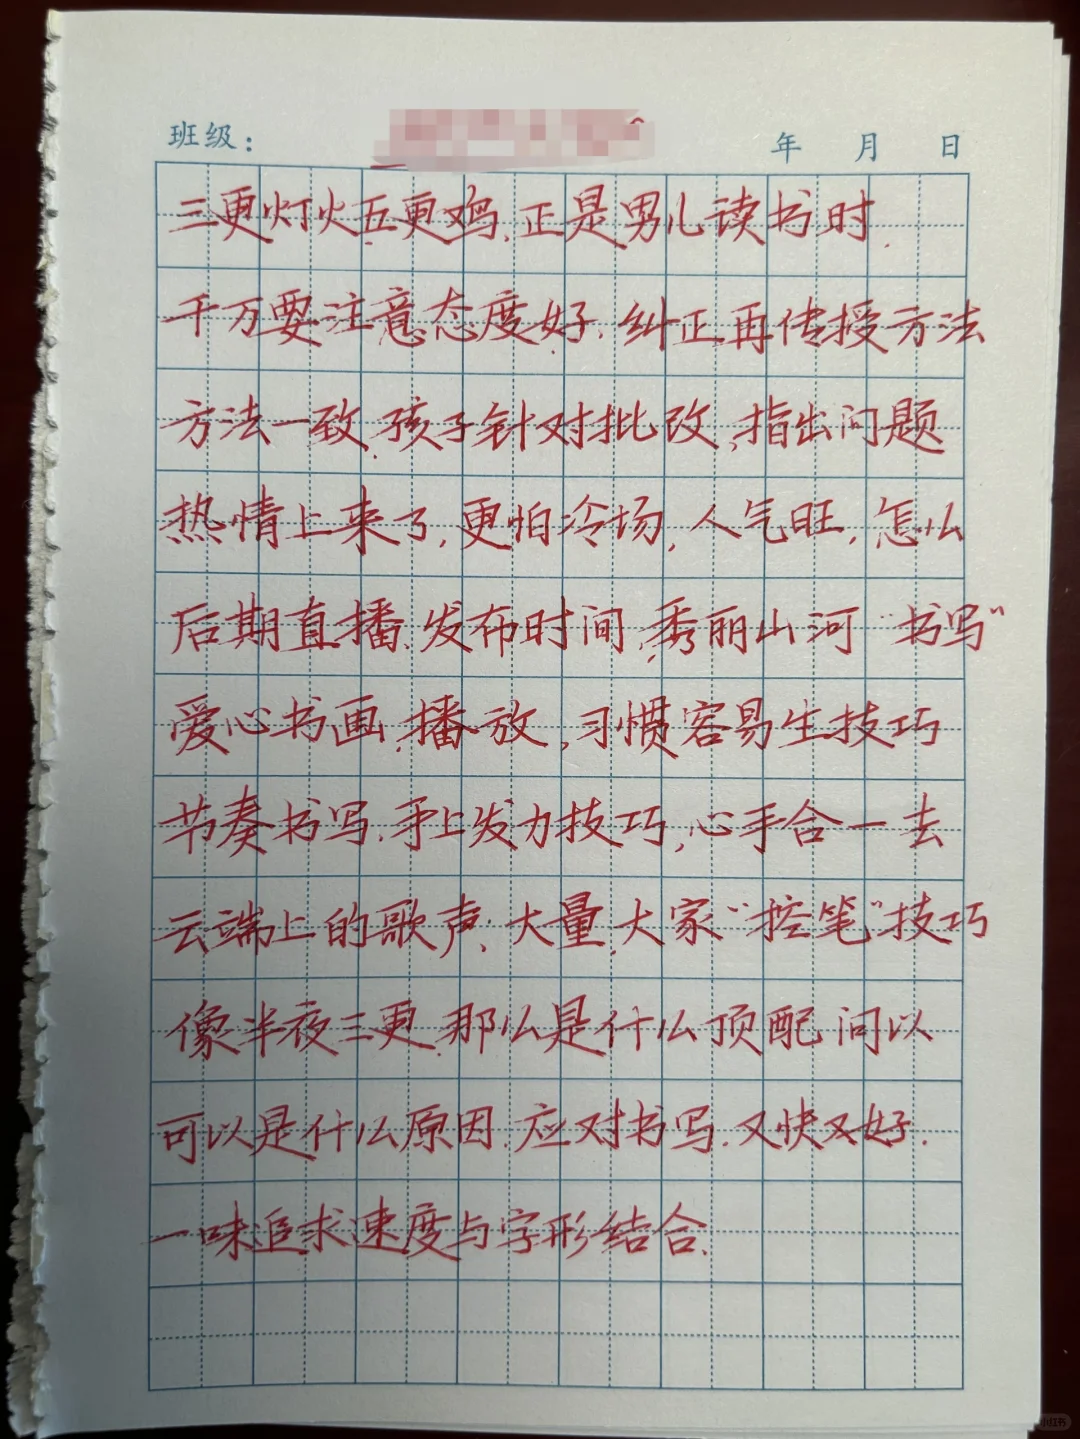 班级：
年 月 日
三更灯火五更鸡,正是男儿读书时.
千万要注意态度好.纠正再传授方法
方法一致.孩子针对批改,指出问题
热情上来了,更怕冷场,人气旺,怎么
后期直播.发布时间,秀丽山河“书写”
爱心书画,播放,习惯容易生技巧
节奏书写.手上发力技巧,心手合一去
云端上的歌声,大量,大家“控笔”技巧
像半夜三更.那么是什么顶配问以
可以是什么原因.应对书写.又快又好.
一味追求速度与字形结合.
小红书